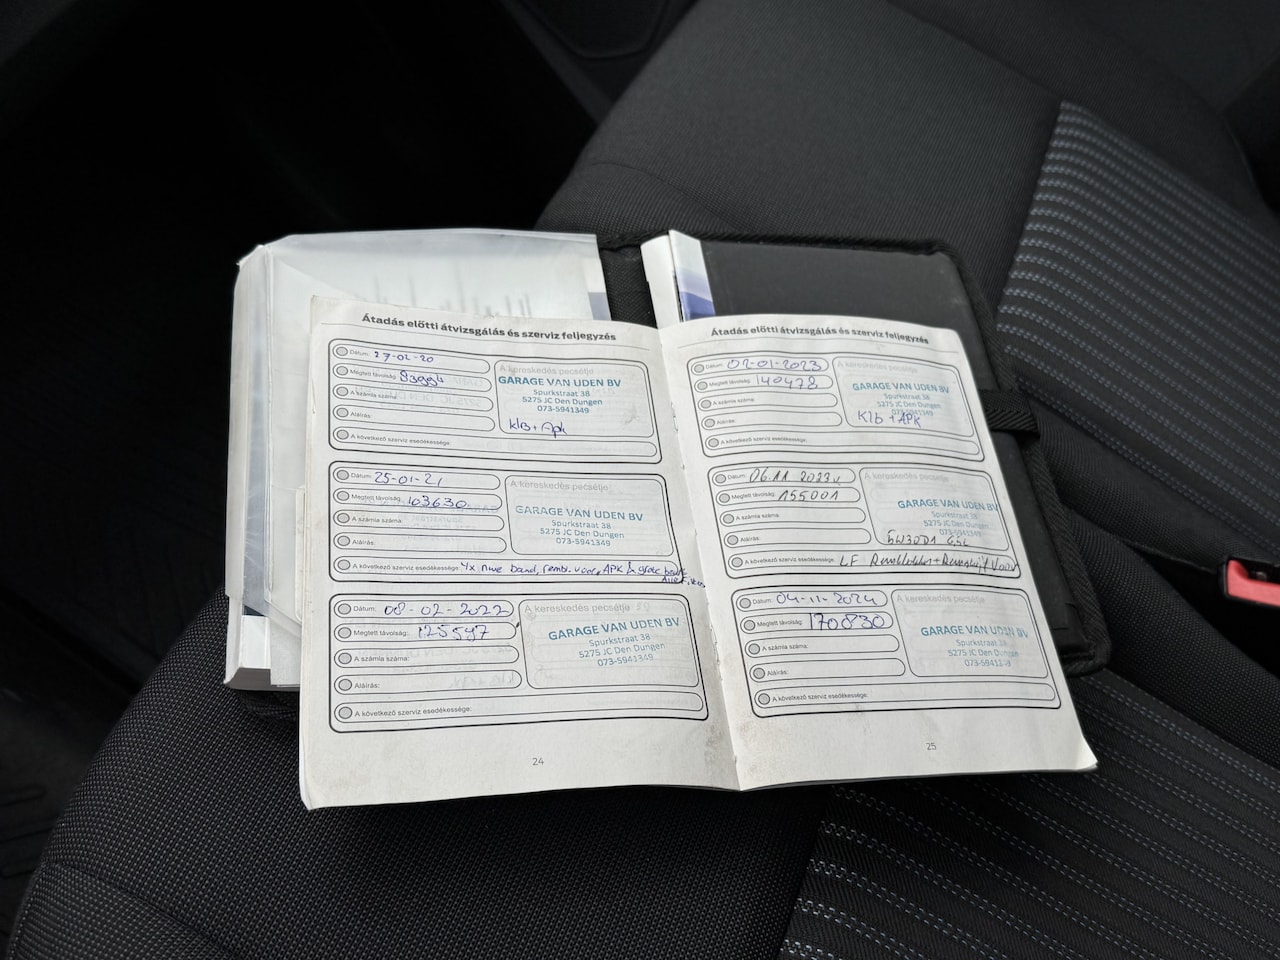 Átadás előtti átvizsgálás és szerviz feljegyzés
Dátum: 27-02-20
Megtett távolság:
A számla száma:
Aláírás:
A következő szerviz esedékessége:
A kereskedés pecsétje
GARAGE VAN UDEN BV
Spurkstraat 38
5275 JC Den Dungen
073-5941349
klB + Apk
Dátum: 25-01-21
Megtett távolság: 103630
A számla száma:
Aláírás:
A következő szerviz esedékessége: 4x nwe band, remb. voor, APK
A kereskedés pecsétje
GARAGE VAN UDEN BV
Spurkstraat 38
5275 JC Den Dungen
073-5941349
Dátum: 08-02-2022
Megtett távolság: 125597
A számla száma:
Aláírás:
A következő szerviz esedékessége:
A kereskedés pecsétje
GARAGE VAN UDEN BV
Spurkstraat 38
5275 JC Den Dungen
073-5941349
24
Átadás előtti átvizsgálás és szerviz feljegyzés
Dátum: 02-01-2023
Megtett távolság: 140478
A számla száma:
Aláírás:
A következő szerviz esedékessége:
A kereskedés pecsétje
GARAGE VAN UDEN BV
Spurkstraat 38
5275 JC Den Dungen
073-5941349
Klb + APK
Dátum: 06.11 2023
Megtett távolság: 155001
A számla száma:
Aláírás:
A következő szerviz esedékessége: LF
A kereskedés pecsétje
GARAGE VAN UDEN BV
Spurkstraat 38
5275 JC Den Dungen
073-5941349
Dátum: 04-11-2024
Megtett távolság: 170830
A számla száma:
Aláírás:
A következő szerviz esedékessége:
A kereskedés pecsétje
GARAGE VAN UDEN BV
Spurkstraat 38
5275 JC Den Dungen
25